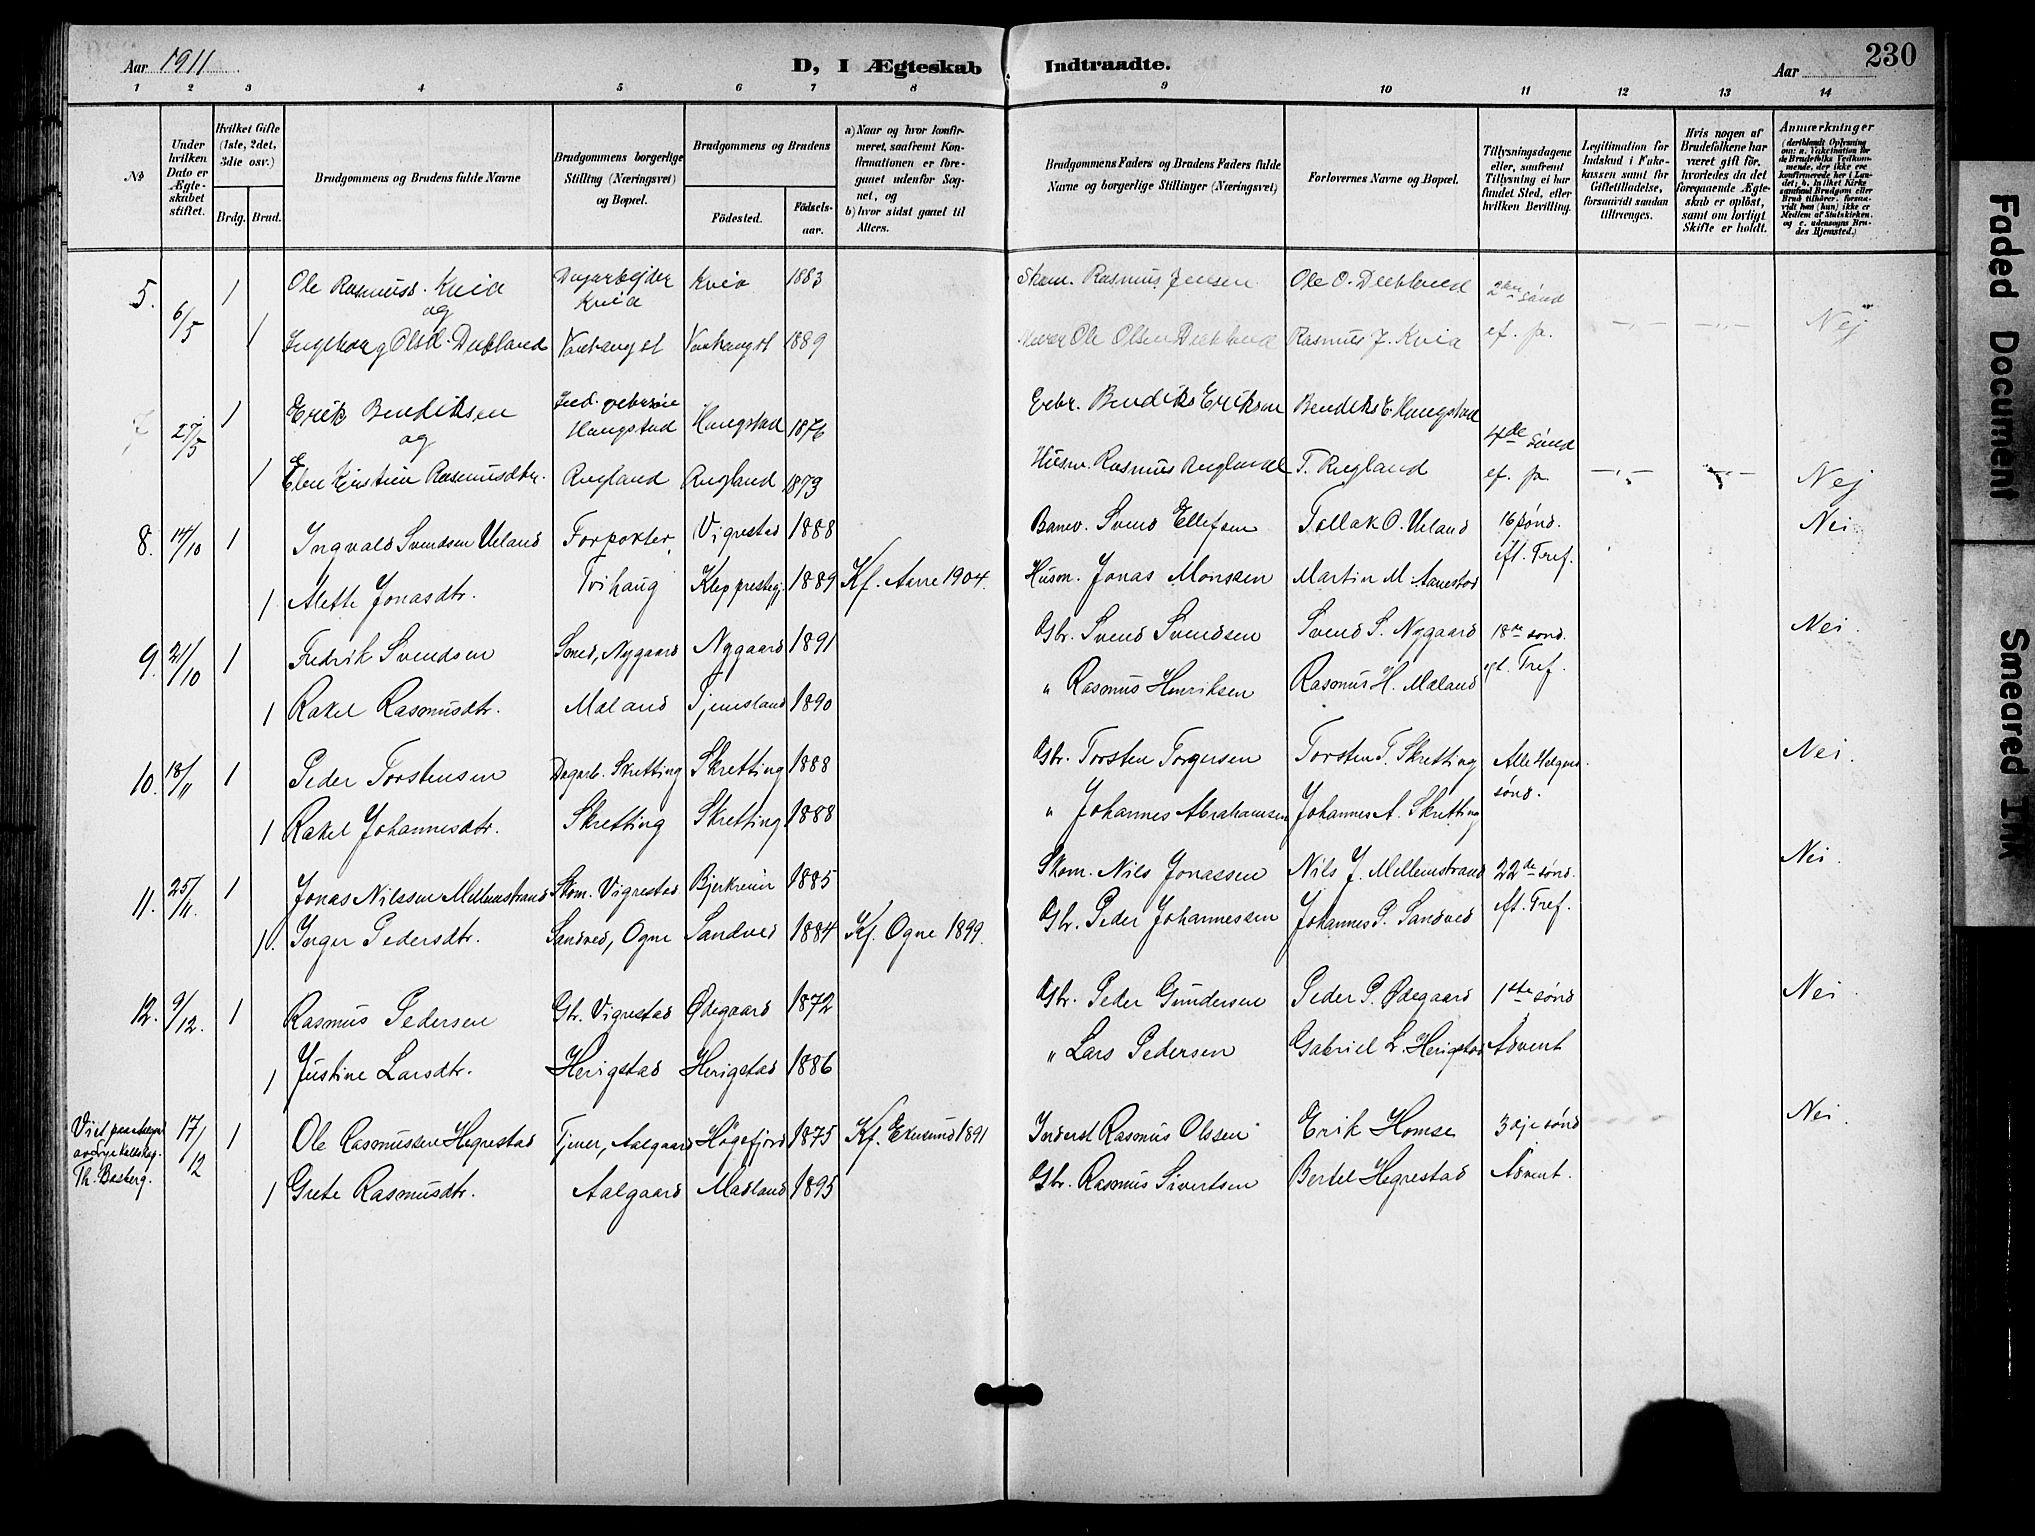 Aar 1911
D, I Ægteskab Indtraadte.
Aar
230
1 2 3 4 5 6 7 8 9 10 11 12 13 14
No
Under hvilken Dato er Ægteskabet stiftet.
Hvilket Gifte (1ste, 2det, 3die osv.)
Brdg. Brud.
Brudgommens og Brudens fulde Navne
Brudgommens borgerlige Stilling (Næringsvei) og Bopæl.
Brudgommens og Brudens
Fødested.
Fødselsaar.
a) Naar og hvor konfirmeret, saafremt Konfirmationen er foregaaet udenfor Sognet, og
b) hvor sidst gaaet til Alters.
Brudgommens Faders og Brudens Faders fulde Navne og borgerlige Stillinger (Næringsvei)
Forlovernes Navne og Bopæl.
Tillysningsdagene eller, saafremt Tillysning ei har fundet Sted, efter hvilken Bevilling.
Legitimation for Indskud i Enkekassen samt for Giftetilladelse, forsaavidt saadan tiltrænges.
Hvis nogen af Brudefolkene har været gift før, hvorledes da det foregaaende Ægteskab er opløst, samt om lovligt Skifte er holdt.
Anmærkninger
5. 6/5 1 Ole Rasmuss. Kvia Dagarbejder Kvia Kvia 1883 Skom. Rasmus Jensen Ole O. Duebland 2den sønd
og
1 Ingeborg Olsd. Duebland Varhaugst Varhaugst 1889 Ole Olsen Duebland Rasmus J. Kvia ef. pa. Nej
7 27/5 1 Erik Bendiksen Haugstad Haugstad 1876 Gebr. Bendiks Eriksen Bendiks E. Haugstad 4de sønd
og
1 Elen Kirstine Rasmusdtr. Rugland Rugland 1879 Husm. Rasmus Rugland T. Rugland ef. pa. Nej
8. 14/10 1 Ingvald Svendsen Ueland Forpakter, Vigrestad 1888 Banev. Svend Ellefsen Tollak O. Ueland 16 sønd. Nei
1 Alette Jonasdtr. Tvihaug Klep prestegj. 1889 Kf. Aarre 1904. Husm. Jonas Monssen Martin M. Aanestad eft. Tref.
9. 21/10 1 Fredrik Svendsen Smed, Nygaard Nygaard 1891 Gbr. Svend Svendsen Svend S. Nygaard 18de sønd. Nei.
1 Rakel Rasmusdtr. Maland Tjemsland 1890 " Rasmus Henriksen Rasmus H. Maland eft. Tref.
10. 18/11 1 Peder Torstensen Dagarb. Skretting Skretting 1888 Gbr. Torsten Torgersen Torsten T. Skretting Alle Helgens Nei.
1 Rakel Johannesdtr. Skretting Skretting 1888 " Johannes Abrahamsen Johannes A. Skretting sønd.
11. 25/11. 1 Jonas Nilssen Mellemstrand Skom. Vigrestad Bjerkreim 1885 Skom. Nils Jonassen Nils J. Mellemstrand 22de sønd. Nei.
1. Inger Pedersdtr. Sandved, Ogne Sandved 1884 Kf. Ogne 1899. Gbr. Peder Johannessen Johannes P. Sandved eft. Tref.
12. 9/12. 1 Rasmus Pedersen Gbr. Vigrestad Ødegaard 1872 Gbr. Peder Gundersen Peder P. Ødegaard 1ste sønd Nei.
1 Justine Larsdtr. Herigstad Herigstad 1886 " Lars Pedersen Gabriel L. Herigstad Advent
Viet
Th. Basberg.
17/12 1 Ole Rasmussen Hegrestad Tjener, Aalgaard Høgsfjord 1875 Kf. Ekersund 1891 Inderst Rasmus Olssen Erik Homse 3dje sønd Nei.
1 Grete Rasmusdtr. Aalgaard Madland 1895 Gbr. Rasmus Sivertsen Bertel Hegrestad Advent.
Faded Document
Smeared Ink